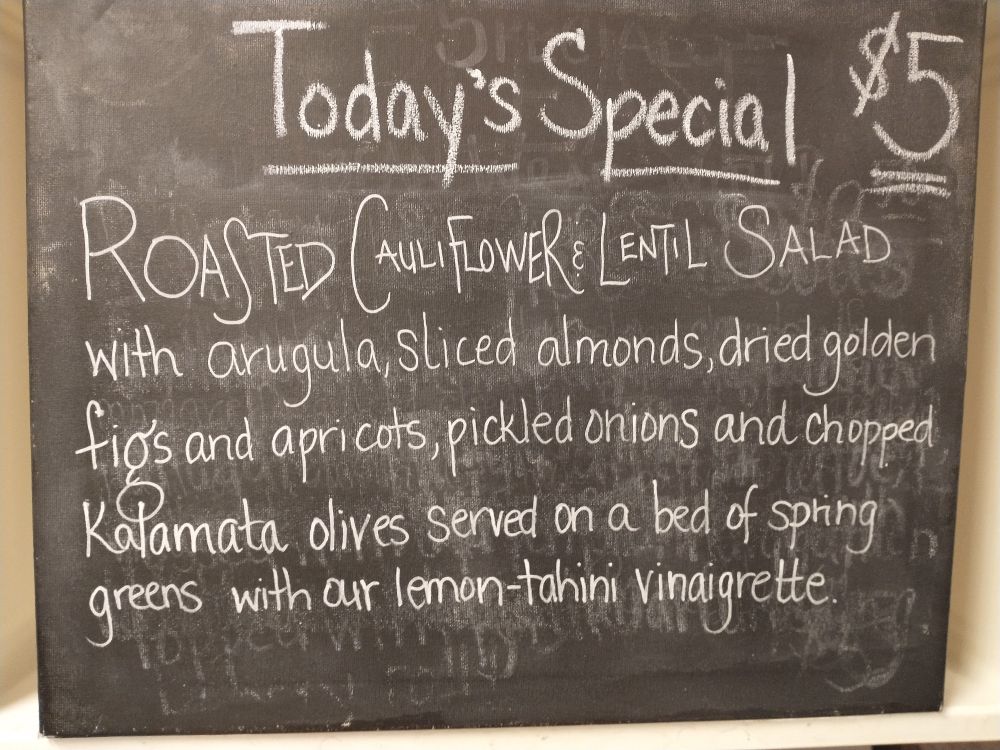 Today's Special $5
ROASTED CAULIFLOWER & LENTIL SALAD
with arugula, sliced almonds, dried golden
figs and apricots, pickled onions and chopped
Kalamata olives served on a bed of spring
greens with our lemon-tahini vinaigrette.